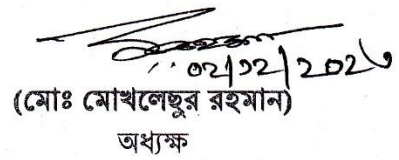 ০২/১২/২০২৬
(মোঃ মোখলেছুর রহমান)
অধ্যক্ষ